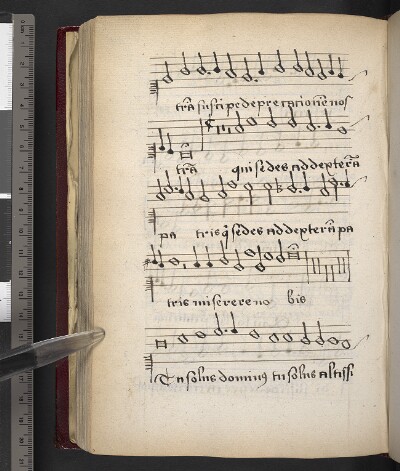 trā suscipe deprecationē nos
trā qui sedes ad dexterā
pa tris q̄ sedes ad dexterā pa
tris miserere no bis
Tu solus dominus tu solus altissi